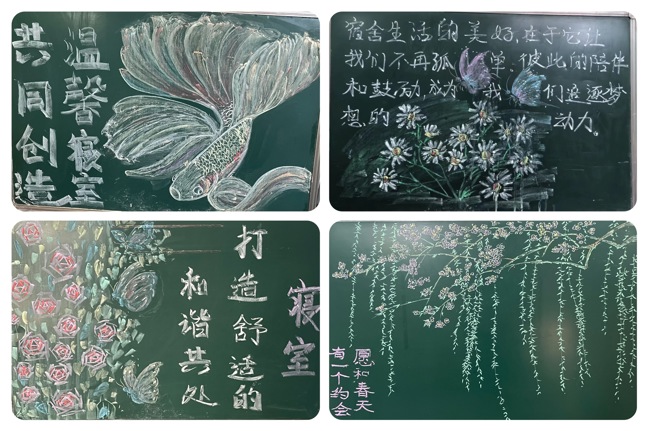 共同创造
温馨寝室
宿舍生活的美好,在于它让
我们不再孤单,彼此的陪伴
和鼓动,成为我们追逐梦
想的动力。
和谐共处
打造舒适的
寝室
愿和春天
有一个约会